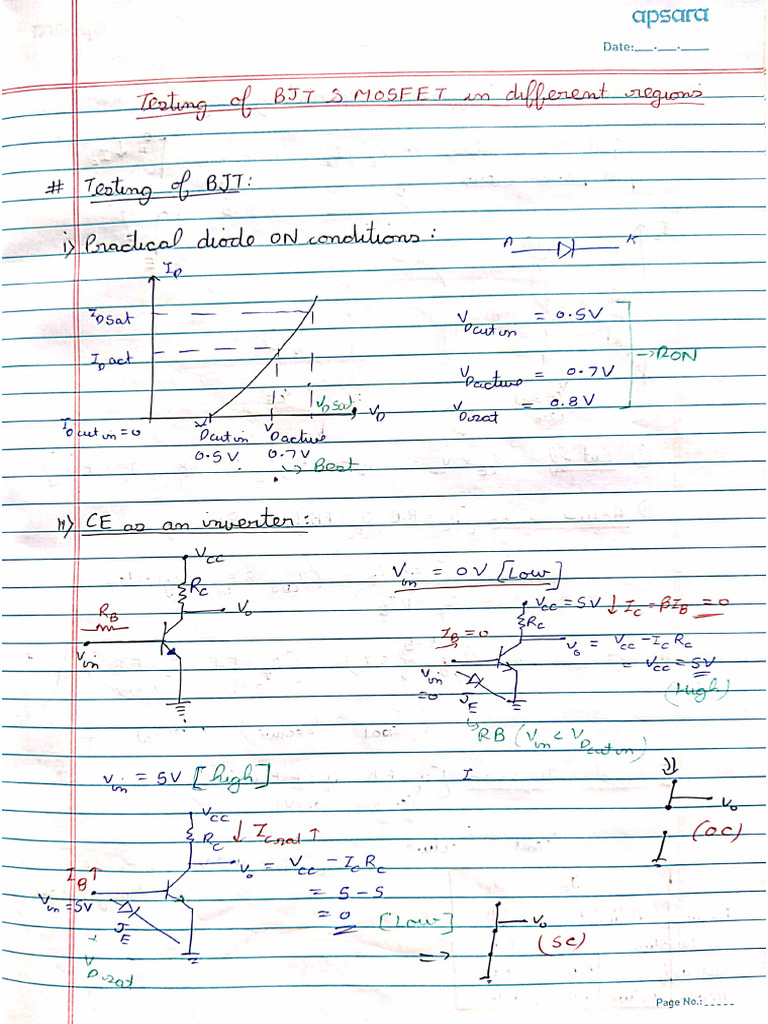 apsara
Date:__.__.__
Testing of BJT & MOSFET in different regions
# Testing of BJT:
i) Practical diode ON conditions:
A K
I_D
I_Dsat
I_D act
I_D cut in = 0
V_D cut in
0.5V
V_D active
0.7V
V_D sat
V_D
↳ Best
V_D cut in = 0.5V
V_D active = 0.7V
V_D sat = 0.8V
→ RON
ii) CE as an inverter:
V_CC
R_C
V_o
R_B
V_in
V_in = 0V [Low]
V_CC = 5V ↓ I_C = βI_B = 0
R_C
I_B = 0
V_o = V_CC - I_C R_C
= V_CC = 5V
(High)
V_in = 0
J_E
↳ RB (V_in < V_D cut in)
V_in = 5V [high]
I
V_o
(OC)
V_CC
R_C ↓ I_C sat ↑
I_B ↑
V_o = V_CC - I_C R_C
= 5 - 5
= 0 [Low]
V_in = 5V
J_E
V_D sat
⇒
V_o
(SC)
Page No.:_____